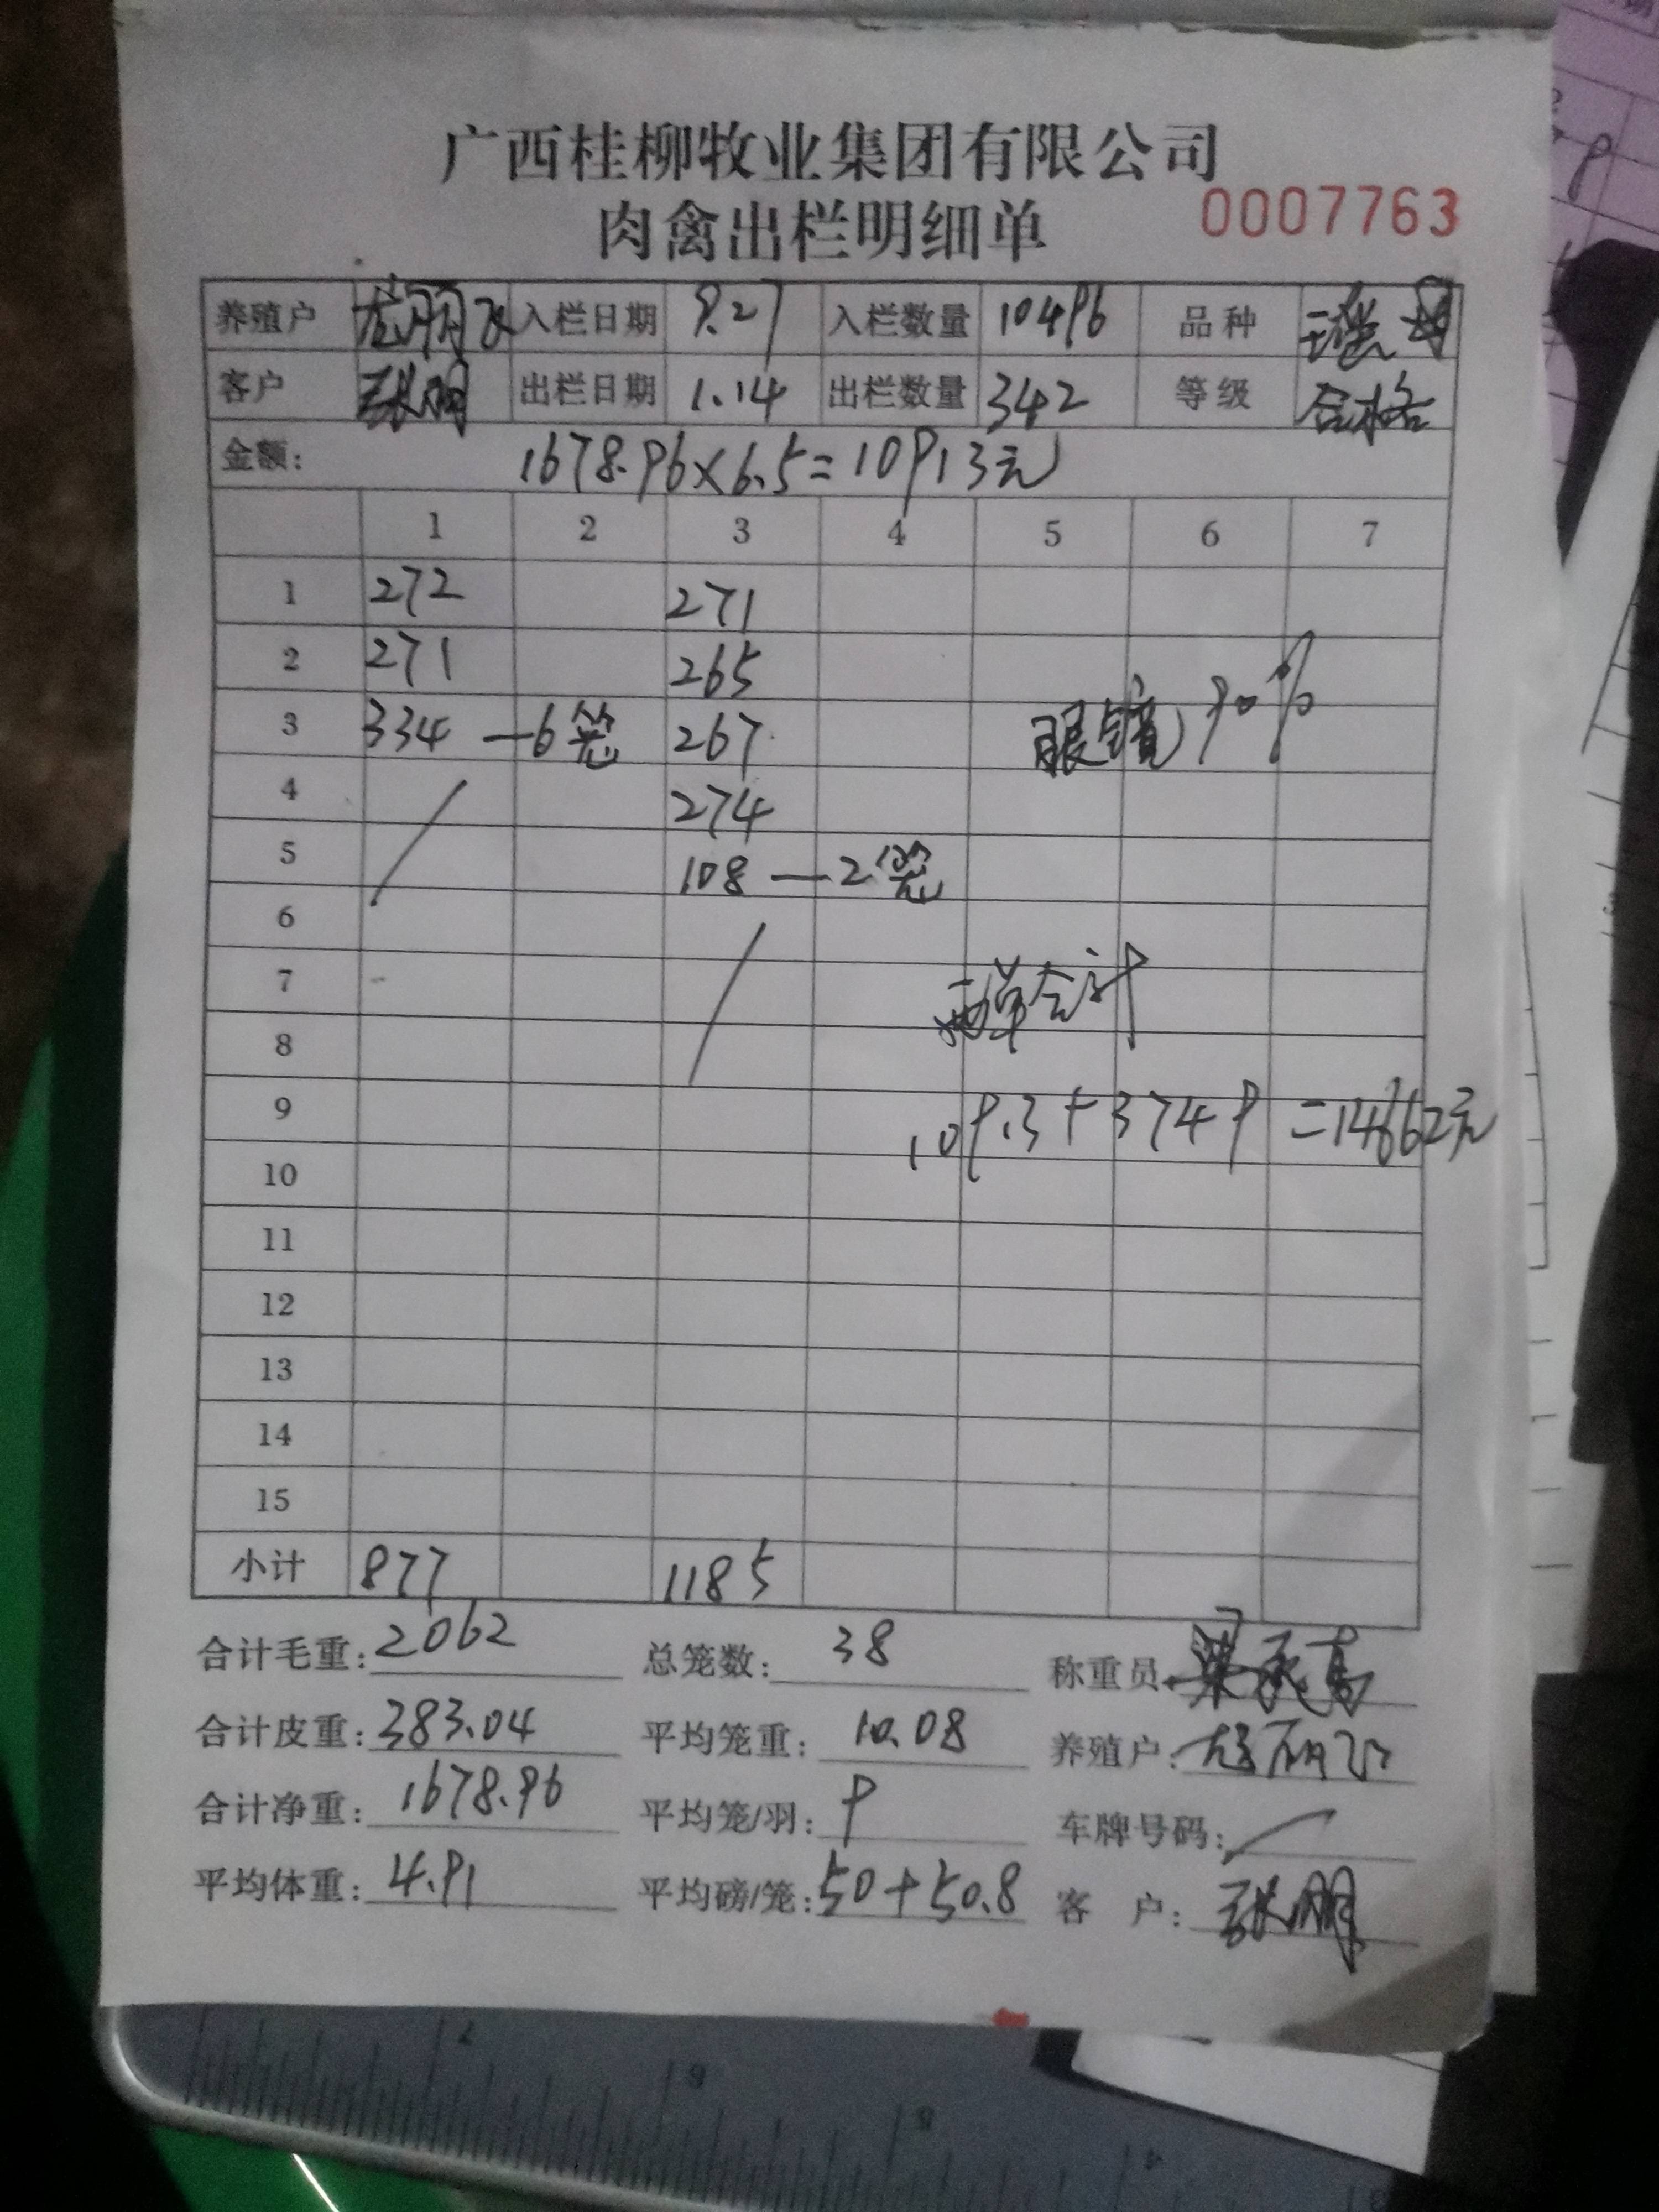 广西桂柳牧业集团有限公司
肉禽出栏明细单
0007763
养殖户 入栏日期 9.27 入栏数量 10496 品种 瑶
客户 张明 出栏日期 1.14 出栏数量 342 等级 合格
金额: 1678.96×6.5=10913元
1 2 3 4 5 6 7
1 272 271
2 271 265
3 334 —6笼 267 眼镜90%
4 274
5 108 —2笼
6
7 两单合计
8
9 10913+3749=14662元
10
11
12
13
14
15
小计 877 1185
合计毛重: 2062 总笼数: 38 称重员
合计皮重: 383.04 平均笼重: 10.08 养殖户:
合计净重: 1678.96 平均笼/羽: 9 车牌号码:
平均体重: 4.91 平均磅/笼: 50+50.8 客户: 张明